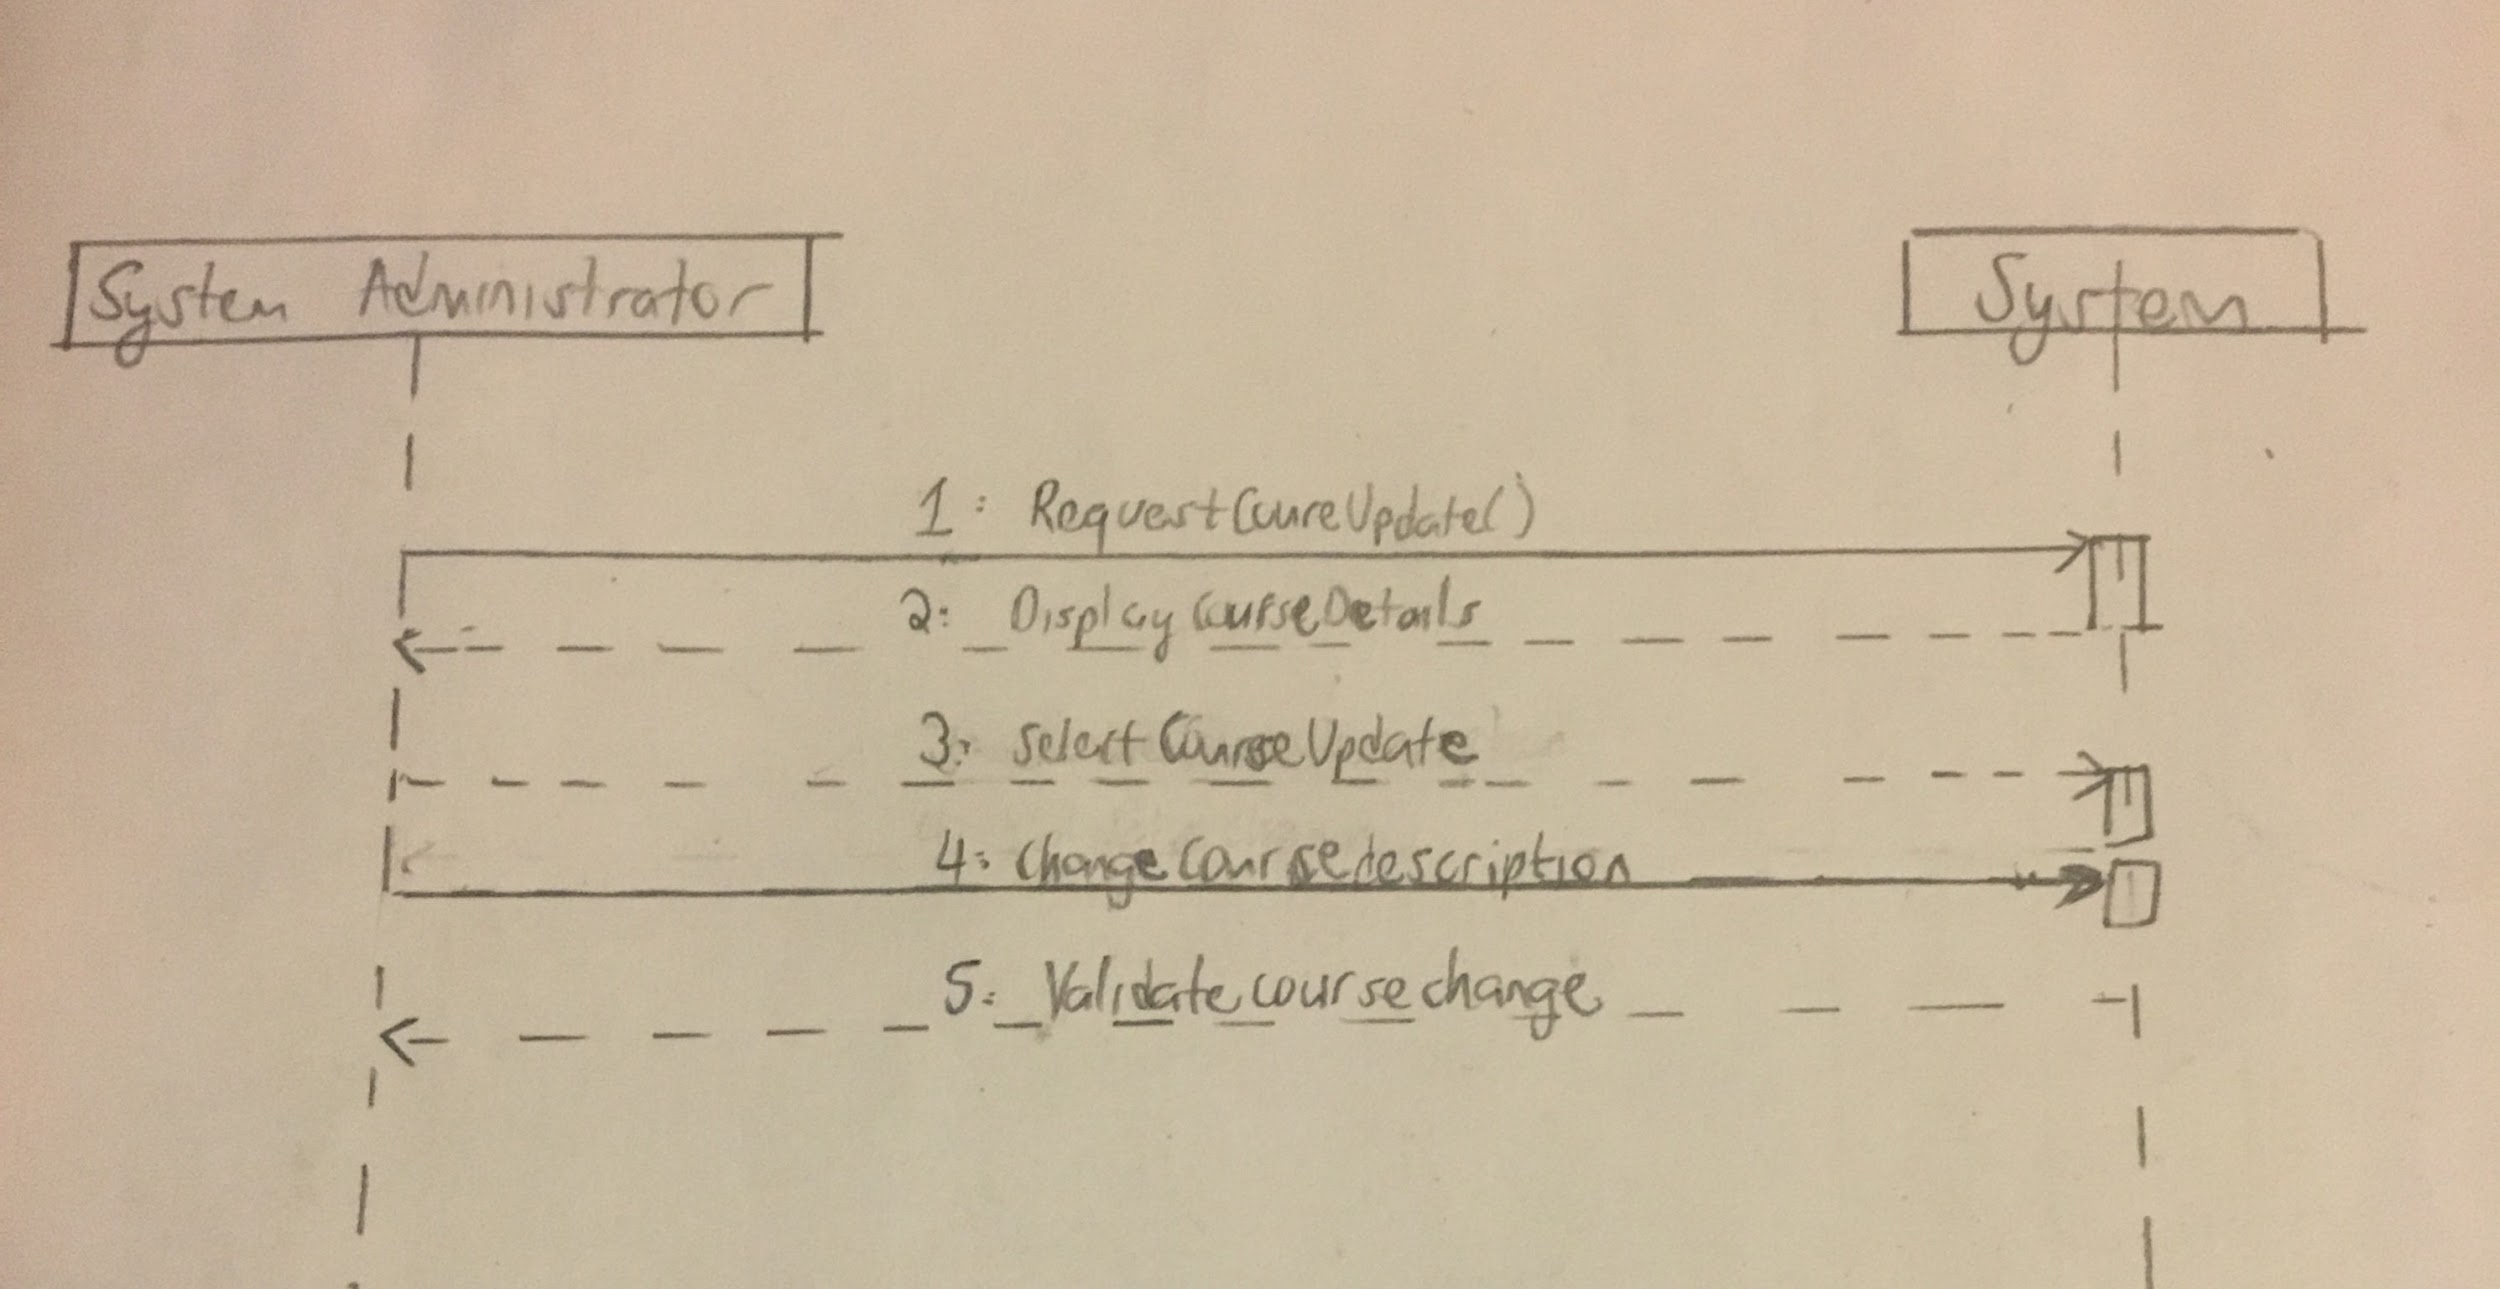 System Administrator
System
1: RequestCoureUpdate()
2: DisplayCourseDetails
3: SelectCourseUpdate
4: ChangeCoursedescription
5: Validatecoursechange